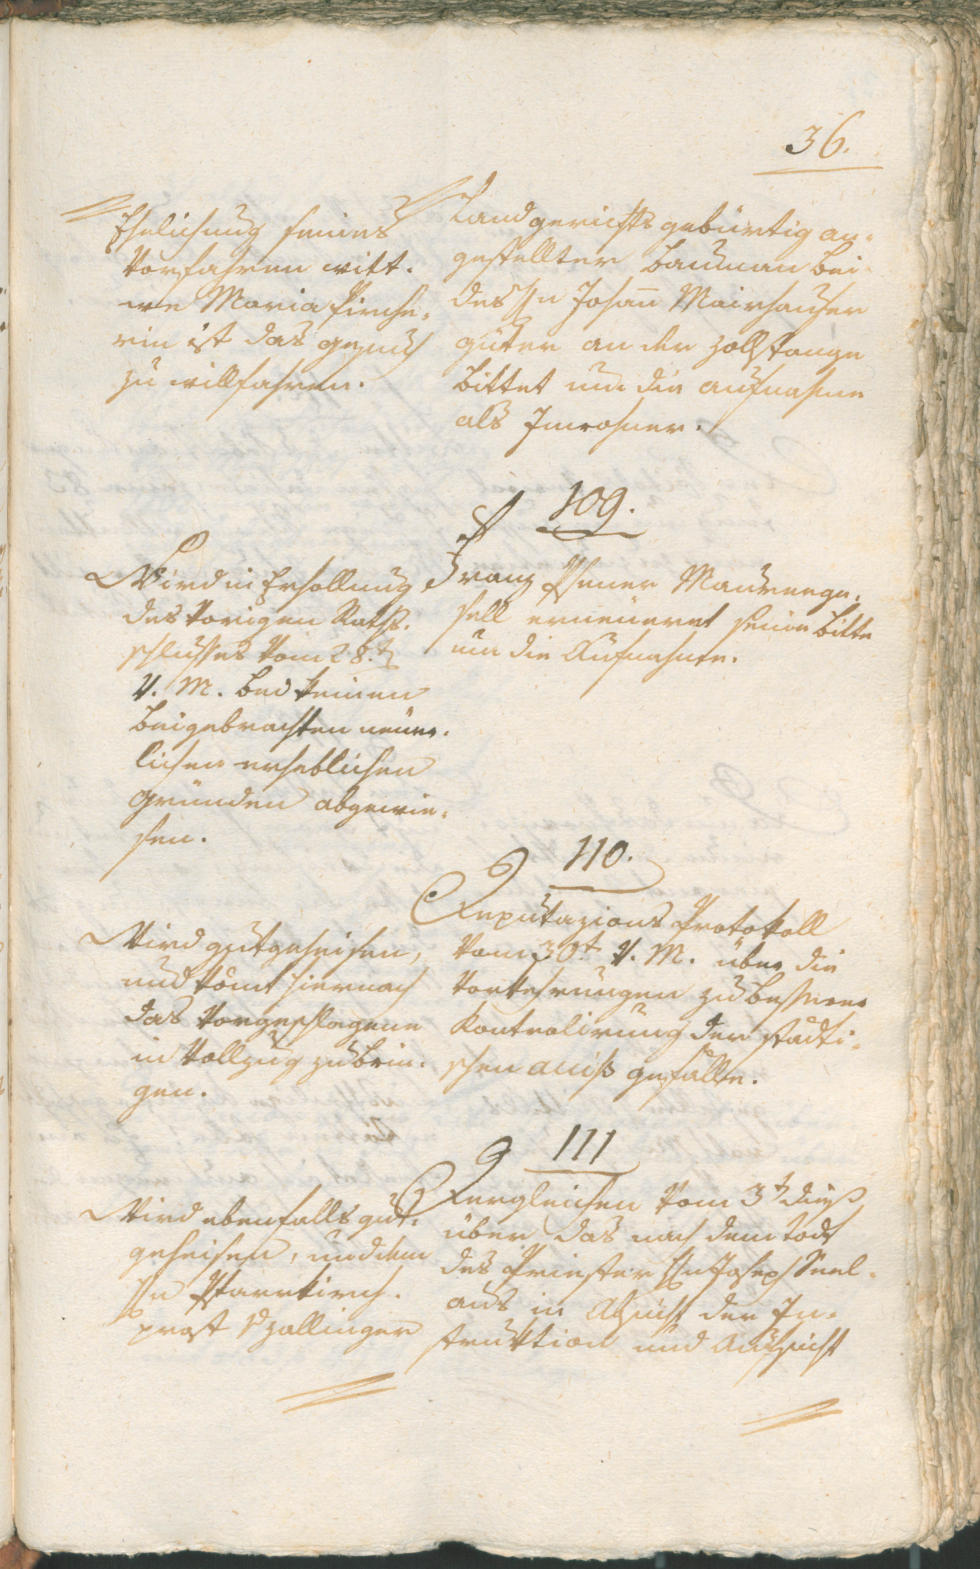 36.
Ehelichung seines
Vorfahren Witt-
we Maria Kirche-
rin ist das gesuch
zu willfahren.
Landgerichts gebürtig an-
gestellter Bauman bei
des Hn Johañ Mairhauser
güter an der Zollstange
bittet um die aufnahme
als Inwohner.
109.
Wird in Erhollung
des Vorigen Raths-
schlusses Vom 28.t
V. M. bei keinen
beigebrachten neuer-
lichen erheblichen
gründen abgewie-
sen.
Franz Maurerge-
sell erneueret seine Bitte
um die Aufnahme.
110.
Wird gutgeheisen,
und kömt hiernach
das Vorgeschlagene
in Vollzug zu brin-
gen.
Deputazions Protokoll
Vom 30t V. M. über die
Vorkehrungen zu besserer
Kontrolirung der städti-
schen acciß gefälle.
111
Wird ebenfalls gut-
geheisen, und dem
Hn Pfarrkirch-
prost Zallinger
Dergleichen Vom 3t dieß
über das nach dem Tode
des Priester Hn Joseph Seel-
aus in Absicht der In-
struktion und Aufsicht